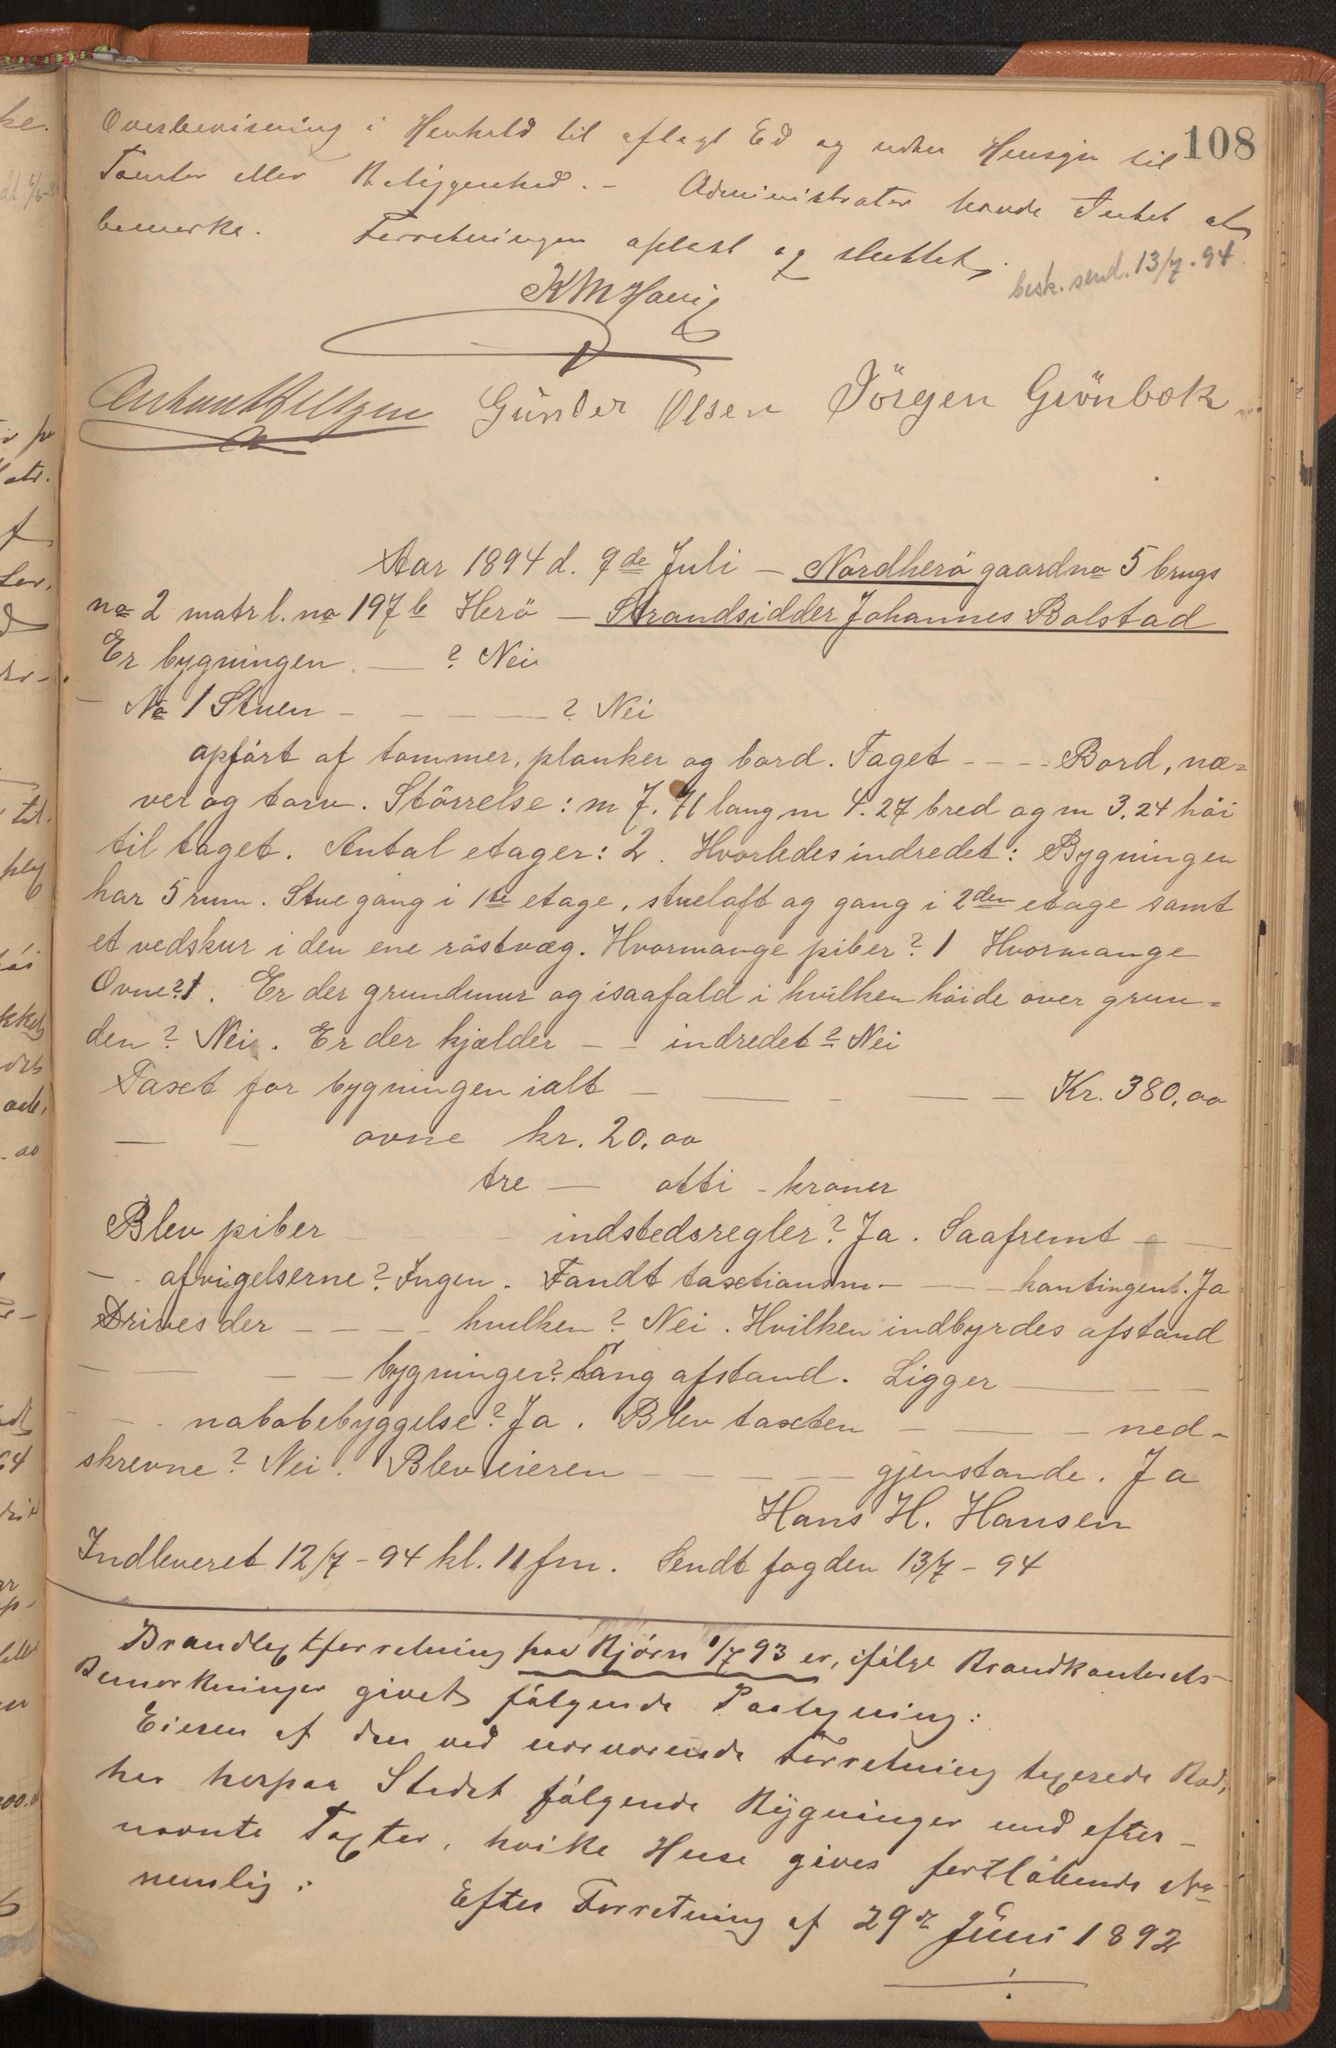 108
Overbevisning i Henhold til aflagt Ed og uden Hensyn til
Tomter eller Beliggenhed. - Administrator havde Intet at
bemerke. Forretningen oplæst og sluttet.
besk. send. 13/7 - 94
KMHavig
Gunder Olsen Jörgen Grönbæk
Aar 1894 d. 9de Juli - Nordherö gaardno 5 brugs
no 2 matrl. no 197 b Herö - Strandsidder Johannes Bolstad
Er bygningen. — ? Nei
- No 1 Stuen - - - - — ? Nei
opfört af tømmer, planker og bord. Taget - - - - Bord, næ=
ver og torv. Störrelse: m 7.71 lang m 4.27 bred og m 3.24 höi
til taget. Antal etager: 2. Hvorledes indredet: Bygningen
har 5 rum. Stue gang i 1ste etage, stueloft og gang i 2den etage samt
et vedskur i den ene röstvæg. Hvormange piber? 1 Hvormange
Ovne? 1. Er der grundmur og isaafald i hvilken höide over grun=
den? Nei. Er der kjælder - - indredet? Nei
Taxt for bygningen ialt — — - — — Kr. 380.00
— - ovne kr. 20.00
tre — otti - kroner
Blev piber - - indstedsregler? Ja. Saafremt - -
- - afvigelserne? Ingen. Fandt taxtionsm. - - - kontingent. Ja
Drives der - - - - hvilken? Nei. Hvilken indbyrdes afstand
— — - - bygninger? Lang afstand. Ligger — - - -
- - nabobebyggelse? Ja. Blev taxten - — - ned-
skrevne? Nei. Blev eieren - - - - - gjenstande. Ja
Hans H. Hansen
Indleveret 12/7 - 94 kl. 11 fm. Sendt fogden 13/7 - 94
Brandtaxtforretning paa Bjørn 1/7 93 er, ifölge Brandkontorets
Bemerkninger givet følgende Paategning:
Eieren af den ved nærværende Forretning taxerede Bod,
har herpaa Stedet følgende Bygninger med efter-
nævnte Taxter, hvilke Huse gives fortløbende No
nemlig:
Efter Forretning af 29de Juni 1892